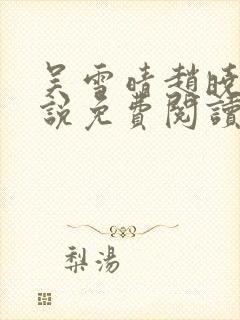 吴雪晴趙曉
說免費閱讀
梨湯